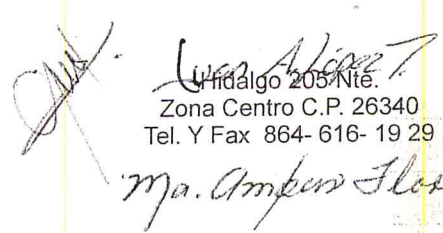 Juan A. López T.
Hidalgo 205 Nte.
Zona Centro C.P. 26340
Tel. Y Fax 864- 616- 19 29
Ma. Amparo Flo